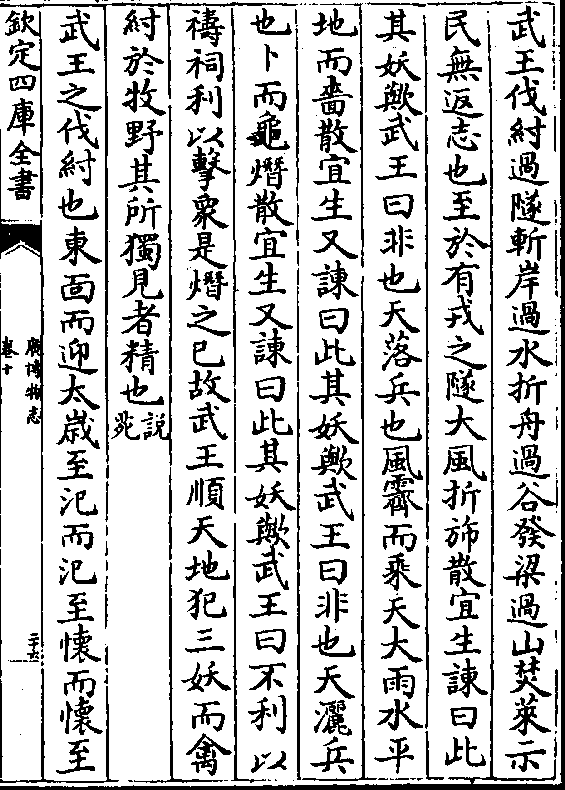 武王伐紂過隧斬岸過水折舟過谷發梁過山焚萊示
民無返志也至於有戎之隧大風折斾散宜生諫曰此
其妖歟武王曰非也天落兵也風霽而乘天大雨水平
地而嗇散宜生又諫曰此其妖歟武王曰非也天灑兵
也卜而龜熸散宜生又諫曰此其妖歟武王曰不利以
禱祠利以擊衆是熸之已故武王順天地犯三妖而禽
紂於牧野其所獨見者精也說苑
武王之伐紂也東面而迎太歲至汜而汜至懷而懷至
欽定四庫全書
廣博物志
卷十
二十六